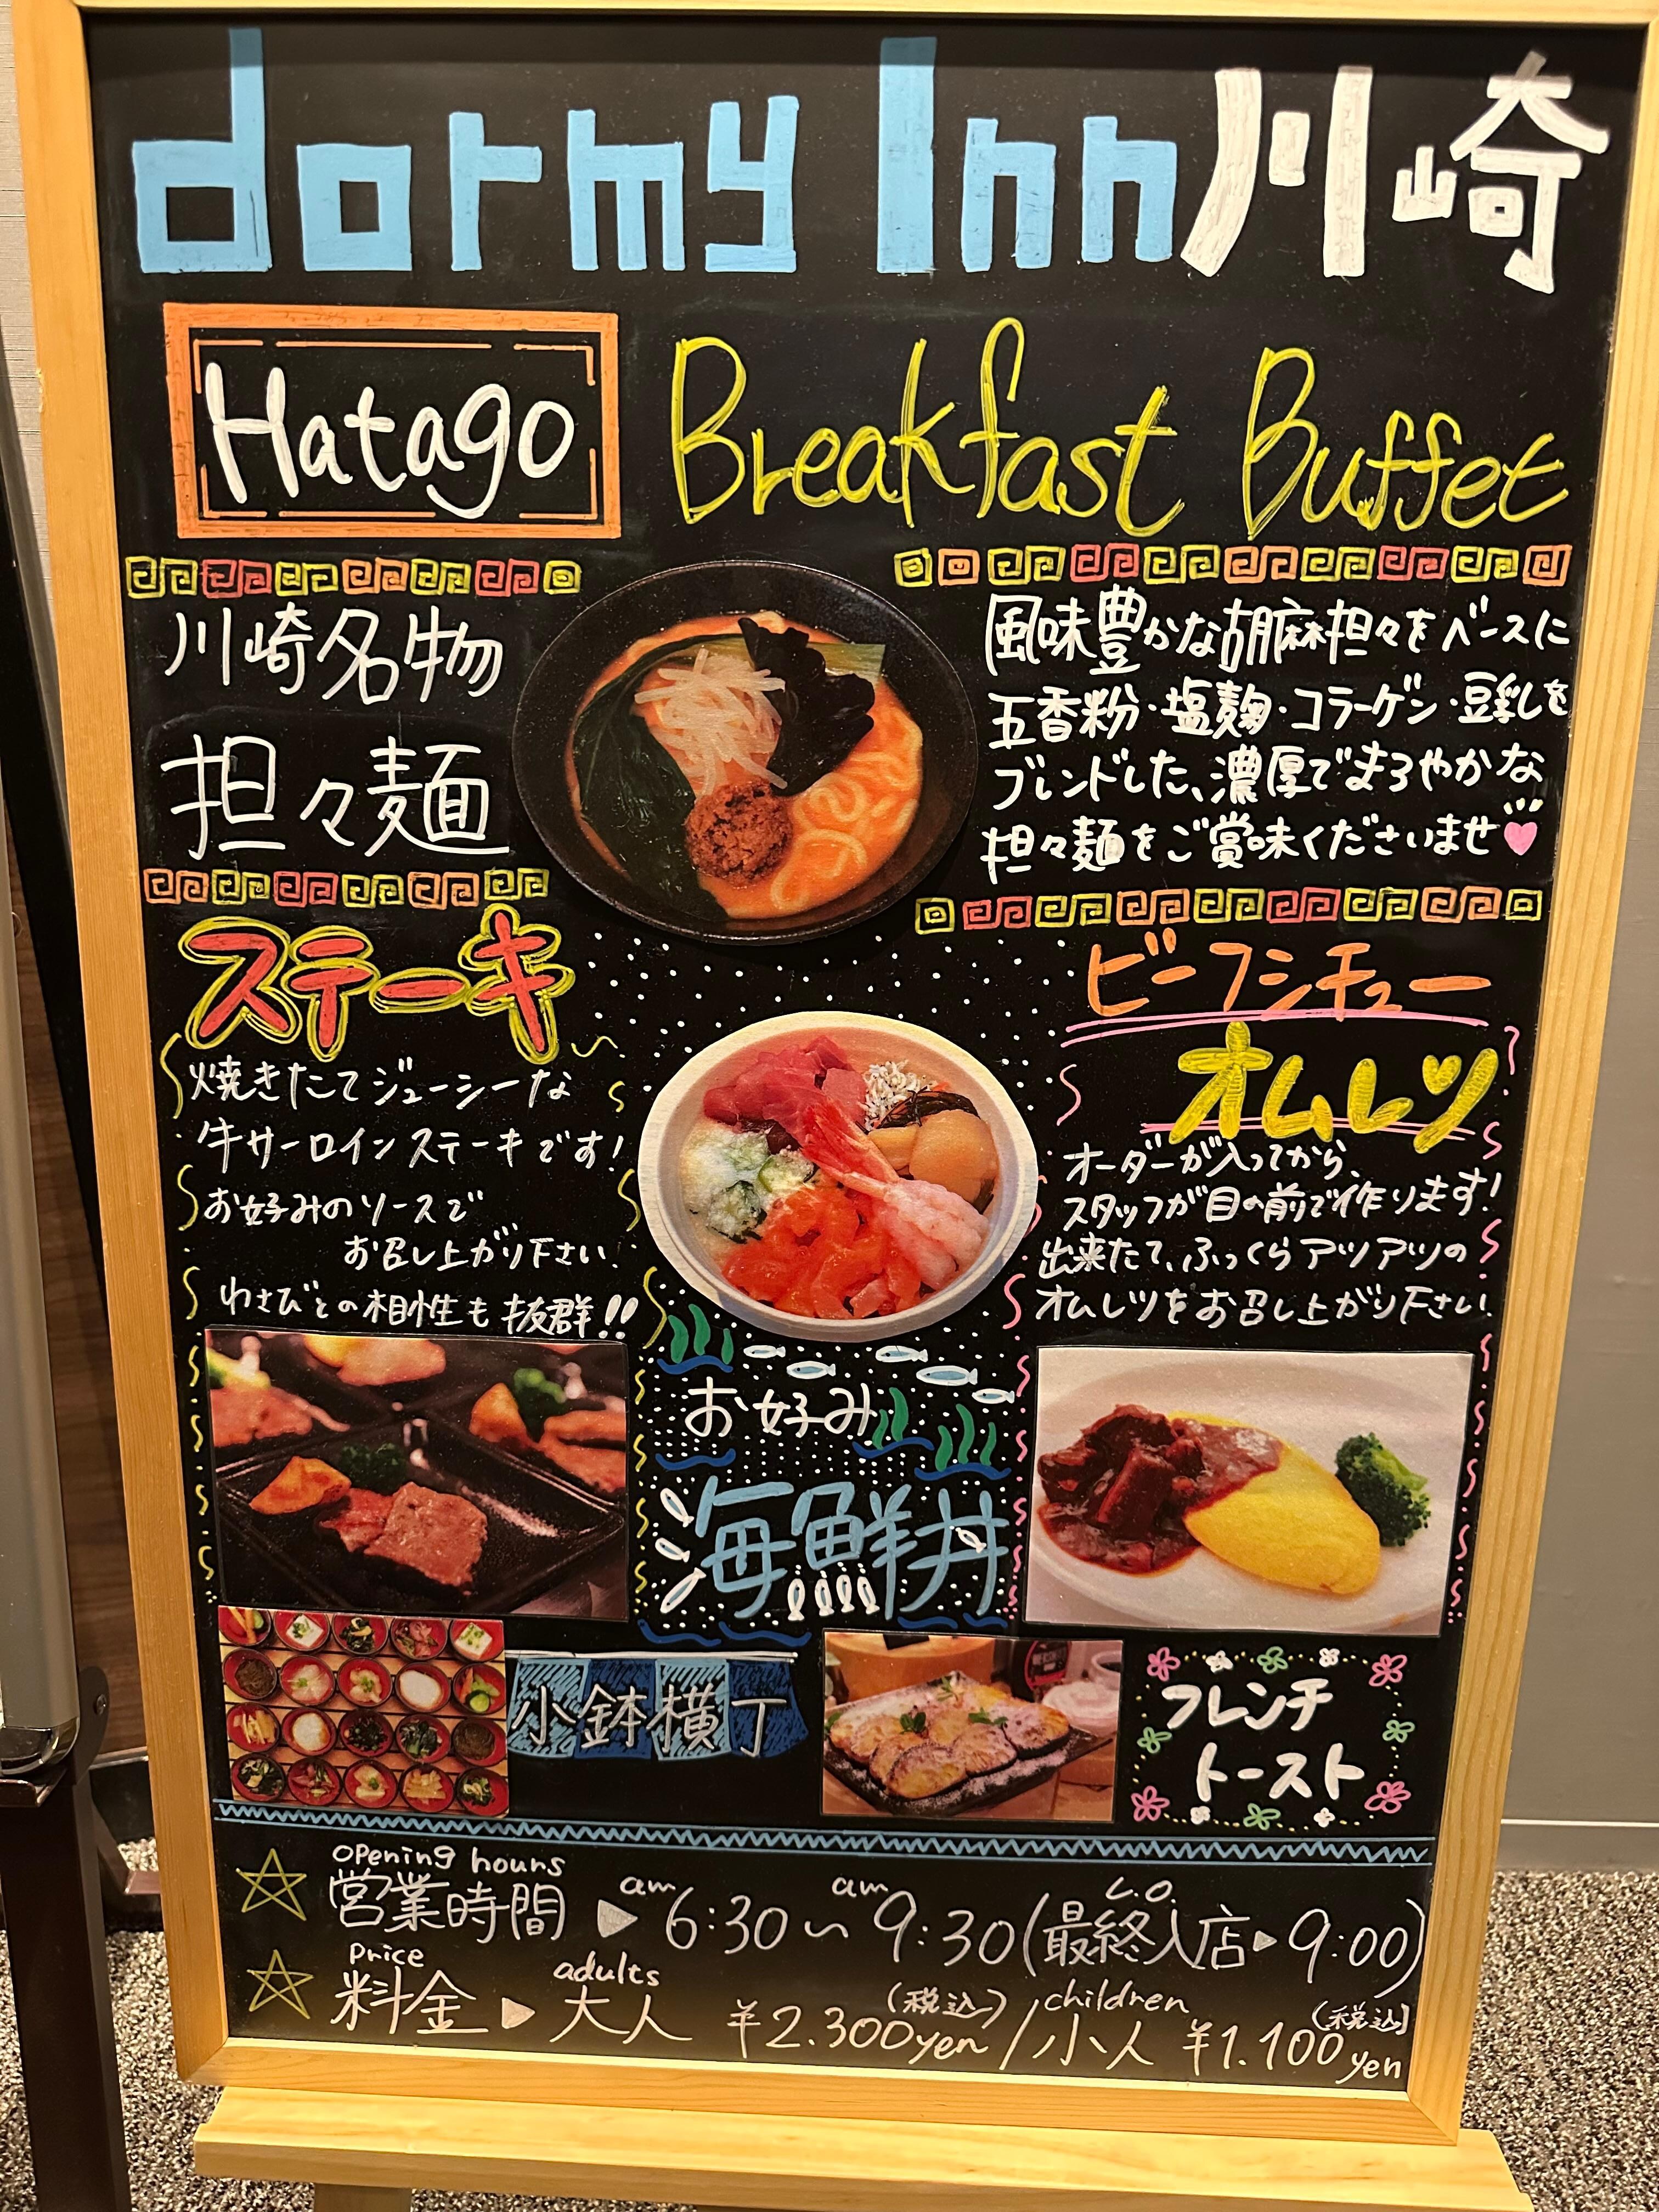 dormy Inn川崎
Hatago
Breakfast Buffet
川崎名物
担々麺
風味豊かな胡麻担々をベースに
五香粉・塩麹・コラーゲン・豆乳を
ブレンドした、濃厚でまろやかな
担々麺をご賞味くださいませ
ステーキ
焼きたてジューシーな
牛サーロインステーキです!
お好みのソースで
お召し上がり下さい。
わさびとの相性も抜群!!
ビーフシチュー
オムレツ
オーダーが入ってから、
スタッフが目の前で作ります!
出来たて、ふっくらアツアツの
オムレツをお召し上がり下さい。
お好み
海鮮丼
小鉢横丁
フレンチ
トースト
opening hours
営業時間 ▶ am 6:30 ~ am 9:30 (L.O. 最終入店 ▶ 9:00)
price
料金 ▶ adults 大人 ¥2.300yen (税込) / children 小人 ¥1.100yen (税込)